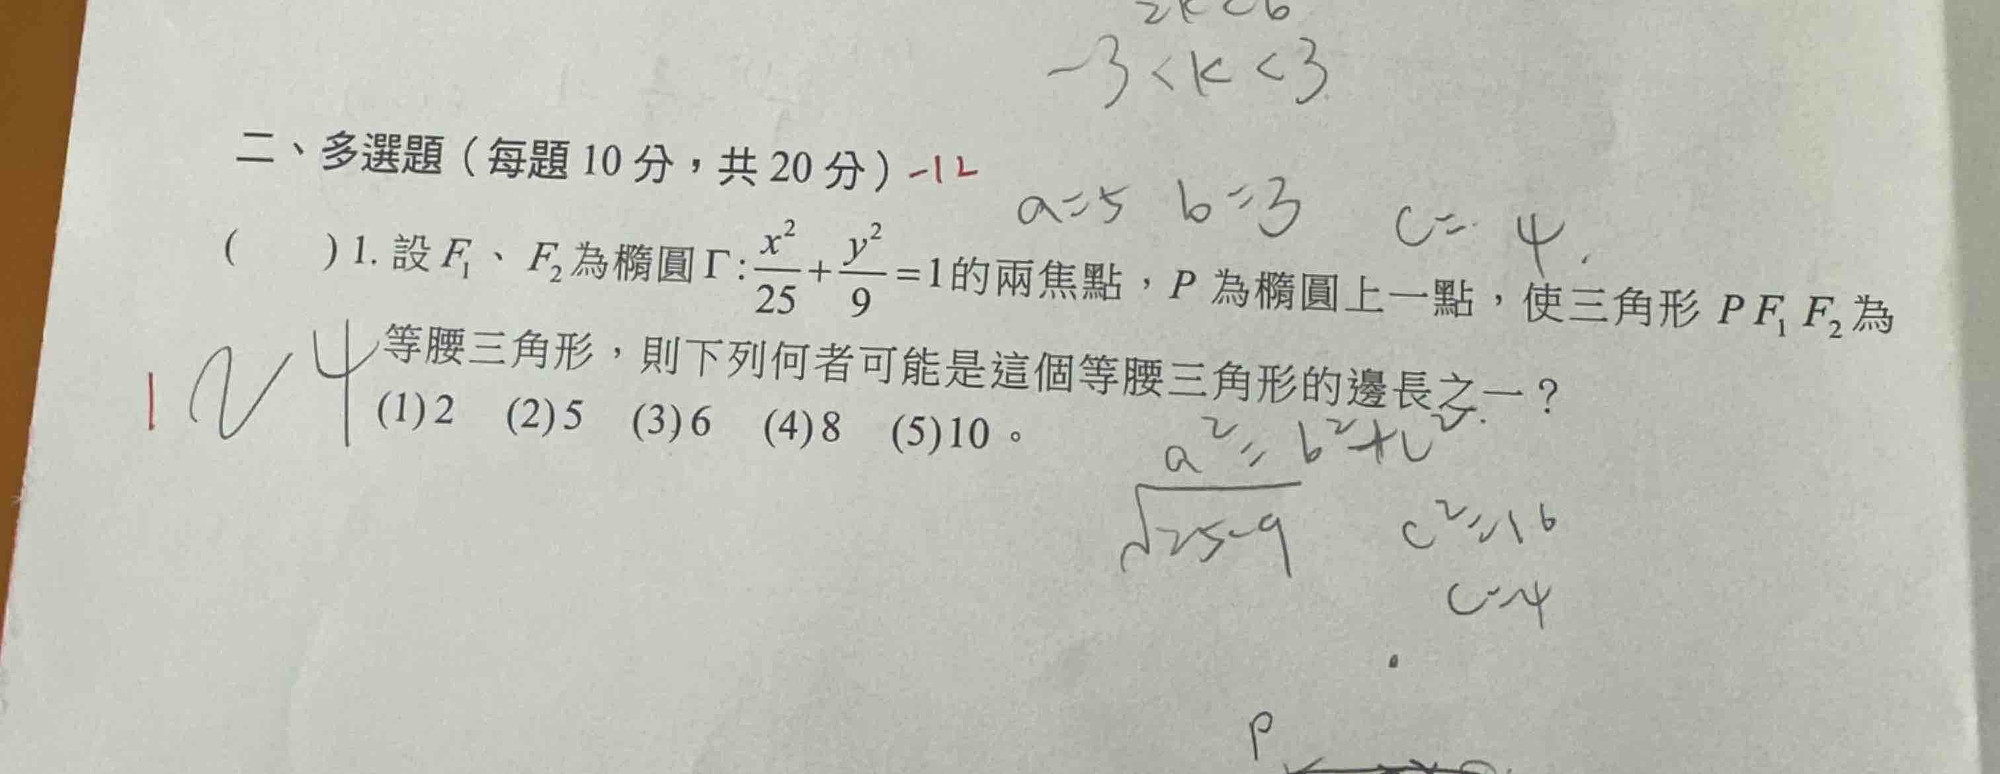 2k<6
-3<k<3
二、多選題（每題10分，共20分）-12
a=5 b=3 c=4.
( )1. 設F₁、F₂為橢圓Γ:x²/25+y²/9=1的兩焦點，P為橢圓上一點，使三角形PF₁F₂為
等腰三角形，則下列何者可能是這個等腰三角形的邊長之一？
1 2 4
(1)2 (2)5 (3)6 (4)8 (5)10。
a²=b²+c²
√25-9 c²=16
c=4
P